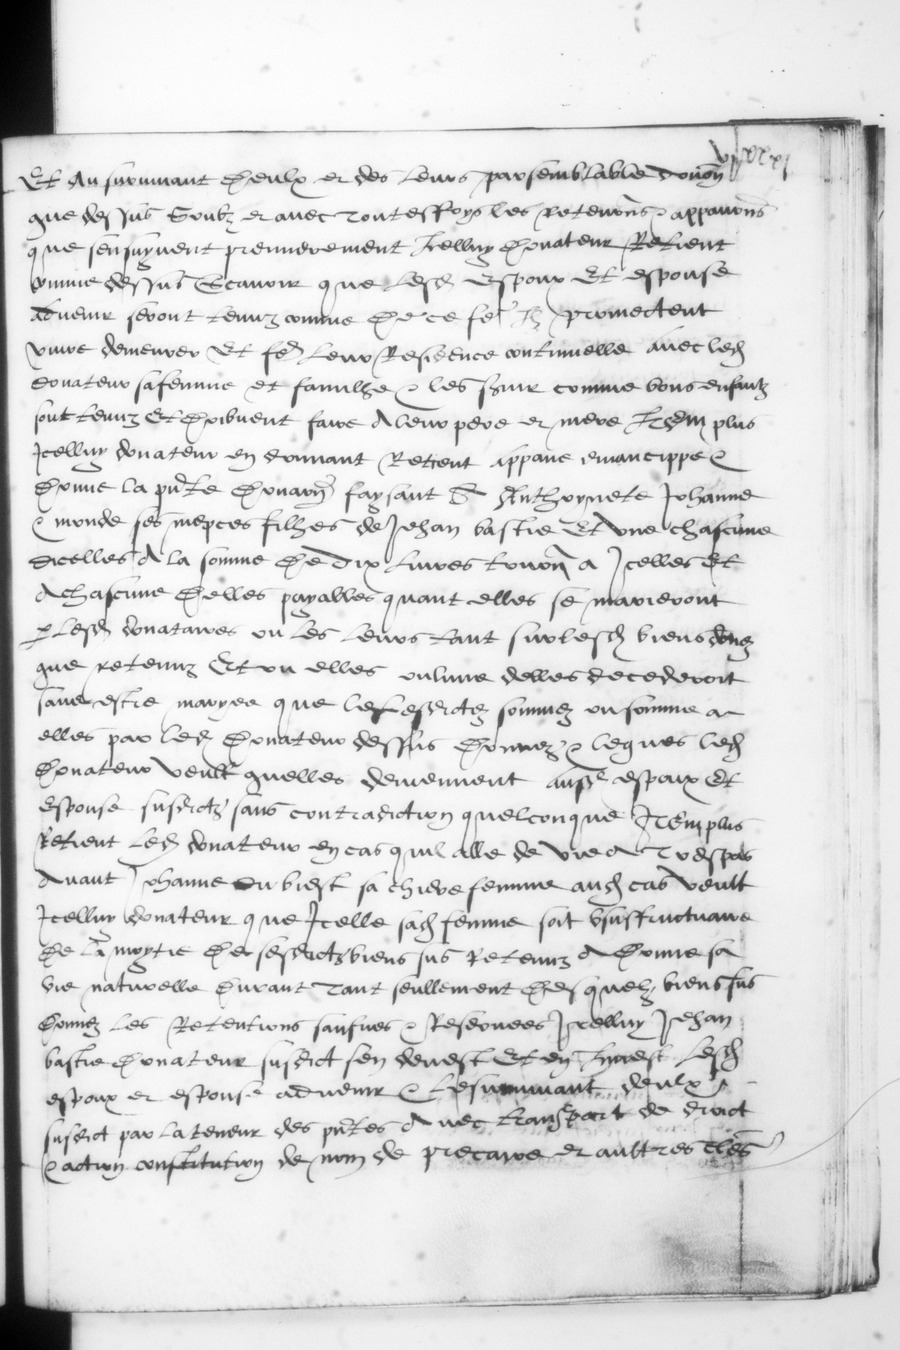 Et au survivant d'eulx et des leurs par semblable donaon
que dessus soubz et avec toutesfoys les retenons & appanons
que sensuyvent premierement icelluy donateur retient
comme dessus scavoir que lesd espoux et espouse
advenir seront tenuz comme de ce fe promectent
vivre demeurer et fe leur residence continuelle avec led
donateur sa femme et famillhe & les servir comme bons enfantz
sont tenuz et doibvent faire a leur pere et mere Item plus
Icelluy donateur en donnant retient appane emancippe &
donne la pnte donaon faysant a Anthoynete Johanne
& monde ses niepces filhes de Jehan bastie et une chascune
dicelles a la somme de dix livres tourn a Icelles et
a chascune delles payables quant elles se marieront
p lesd donataires ou les leurs tant sur lesd biens donez
que retenuz Et ou elles ou lune delles decederoit
sans estre maryee que lesdictes sommes ou somme a
elles par led donateur dessus donnez & legues led
donateur veult quelles deviennent ausd espoux et
espouse susdictz sans contradiction quelconque Item plus
Retient led donateur en cas quil alle de vie a trespas
avant Johanne du biest sa chiere femme aud cas veult
Icelluy donateur que Icelle sad femme soit usufructuaire
de la moytie de sesdictz biens sus retenuz a donne sa
vie naturelle durant tant seullement desquelz biens sus
donnez les retentions saulves & reservees Icelluy Jehan
bastie donateur susdict sen devest et en Invest lesd
espoux et espouse advenir & le survivant deulx
susdict par la teneur des pntes avec transport de droict
& action constitution de nom de precaire et aultres cles